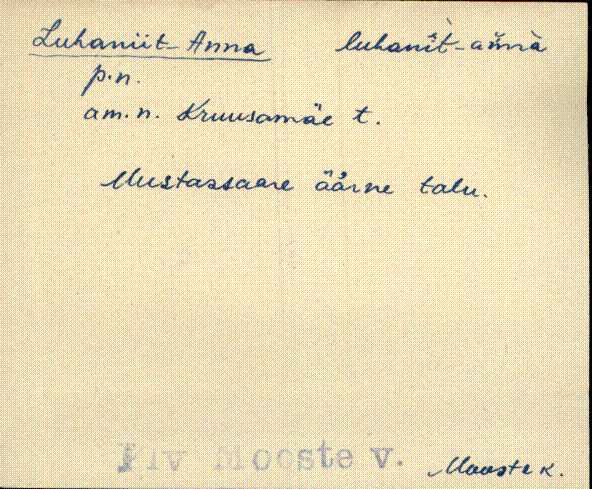 Luhaniit-Anna luhanìt-ańnà
p.n.
am.n. Kruusamäe t.
Mustassaare äärne talu.
Plv Mooste v. Mooste k.